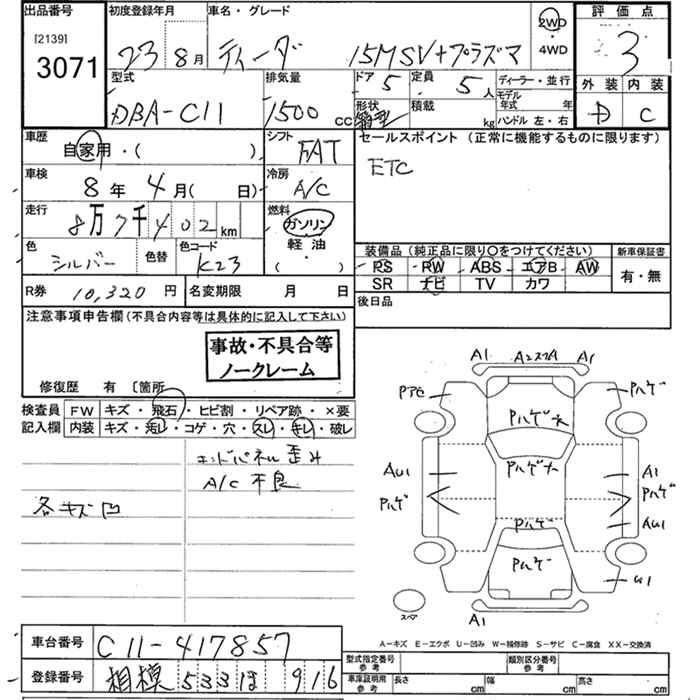 出品番号 初度登録年月 車名・グレード 2WD 評価点
[2139] 3071 23年 8月 ティーダ 15MSV+プラズマ ・4WD 3
型式 排気量 ドア 5 定員 5人 ディーラー・並行 外装 内装
DBA-C11 1500cc 形状 箱型 積載 kg モデル年式 年 D C
ハンドル 左・右
車歴 自家用・( ) シフト FAT セールスポイント (正常に機能するものに限ります)
車検 8年 4月( 日) 冷房 A/C ETC
走行 8万7千402km 燃料 ガソリン
軽・油
( )
色 シルバー 色替 色コード K23 装備品 (純正品に限り〇をつけてください) 新車保証書
PS PW ABS エアB AW 有・無
SR ナビ TV カワ
R券 10,320円 名変期限 月 日 後日品
注意事項申告欄(不具合内容等は具体的に記入して下さい)
事故・不具合等
ノークレーム
修復歴 有 〔箇所
検査員 FW キズ・飛石・ヒビ割・リペア跡・×要
記入欄 内装 キズ・汚レ・コゲ・穴・スレ・キレ・破レ
エンドパネル歪み
A/C不良
各キズ凹
A1 A1
Pハゲ
Pハゲ大
Pハゲ大
AU1 A1
Pハゲ Pハゲ
Pハゲ AU1
Pハゲ
U1
スペア A1
A-キズ E-エクボ U-凹み W-補修跡 S-サビ C-腐食 XX-交換済
車台番号 C11-417857 型式指定番号 参考 類別区分番号 参考
登録番号 相模 533 ほ 916 車庫証明用 参考 長さ cm 幅 cm 高さ cm